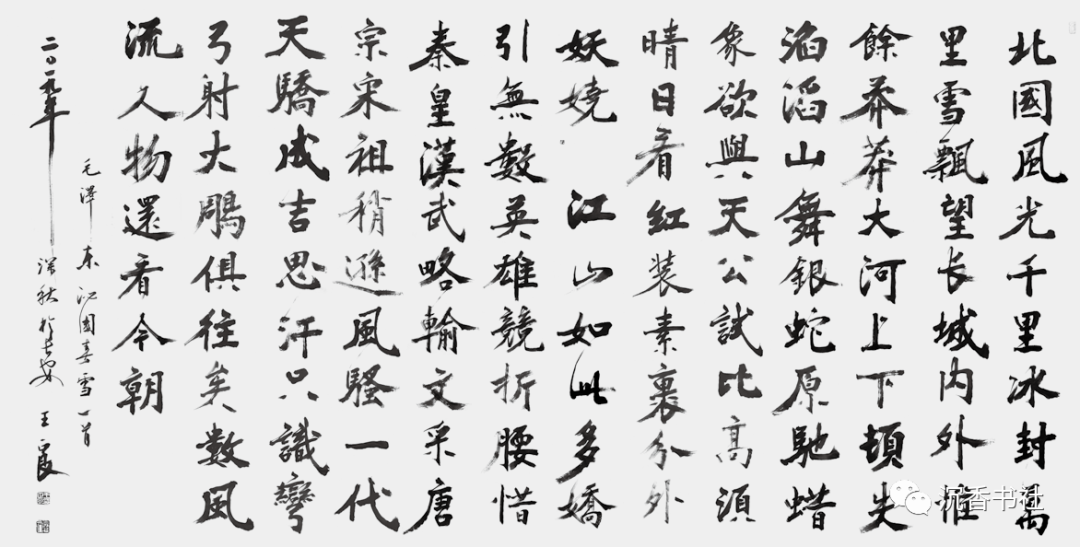 北國風光千里冰封萬
里雪飄望长城内外惟
餘莽莽大河上下頓失
滔滔山舞銀蛇原馳蜡
象欲與天公試比高須
晴日看紅装素裹分外
妖嬈 江山如此多嬌
引無數英雄競折腰惜
秦皇漢武略輸文采唐
宗宋祖稍遜風騷一代
天驕成吉思汗只識彎
弓射大鵰俱往矣數風
流人物還看今朝
毛澤东沁園春雪一首
二〇一九年深秋於長安 王良
沉香书社